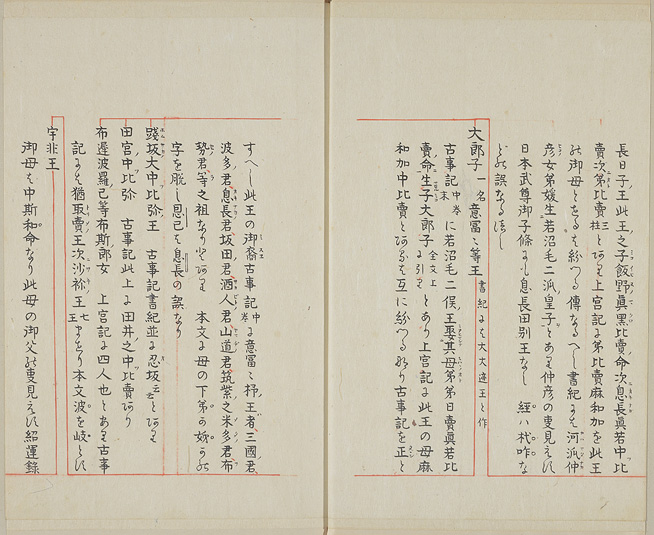 長日子王此王之子飯野眞黒比賣命次息長眞若中比
賣次弟比賣三柱とあり上宮記に弟比賣麻和加を此王
の御母とせるは紛つる傳なるへし書紀には河派仲
彦女弟媛生若沼毛二派皇子とあり仲彦の事見えす
日本武尊御子條にも息長田別王なし 經ハ杙咋な
との誤なるへし
大郎子一名意冨〻等王書紀には大大迹王と作
古事記中卷末に若沼毛二俣王娶其母弟百日賣眞若比
賣命生子大郎子全文上に引きとあり上宮記に此王の母麻
和加中比賣とあるは互に紛つるなり古事記を正と
すへし此王の御裔古事記中卷に意冨〻杼王者三國君
波多君息長君坂田君酒人君山道君筑紫之米多君布
勢君等之祖なりとあり 本文に母の下弟の娥の
字を脱し息己は息長の誤なり
踐坂大中比弥王 古事記書紀並に忍坂とあり
田宮中比弥 古事記此上に田井之中比賣あり
布遅波羅己等布斯郎女 上宮記に四人也とあり古事
記には猶取賣王次沙祢王七王ませり本文波を岐とす
宇非王
御母は中斯和命なり此母の御父の事見えす紹運錄